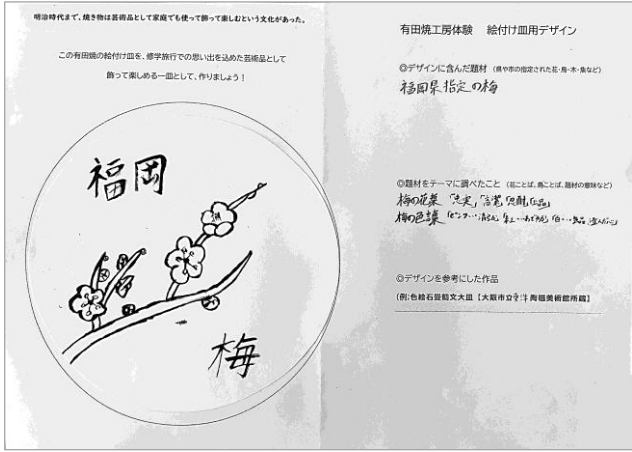 明治時代まで、焼き物は芸術品として家庭でも使って飾って楽しむという文化があった。
この有田焼の絵付け皿を、修学旅行での思い出を込めた芸術品として
飾って楽しめる一皿として、作りましょう！
福岡
梅
有田焼工房体験 絵付け皿用デザイン
◎デザインに含んだ題材 （県や市の指定された花・鳥・木・魚など）
福岡県指定の梅
◎題材をテーマに調べたこと （花ことば、鳥ことば、題材の意味など）
梅の花言葉 「忠実」「高潔」「忍耐」「上品」
◎デザインを参考にした作品
（例：色絵石畳鶴文大皿 【大阪市立東洋陶磁美術館所蔵】